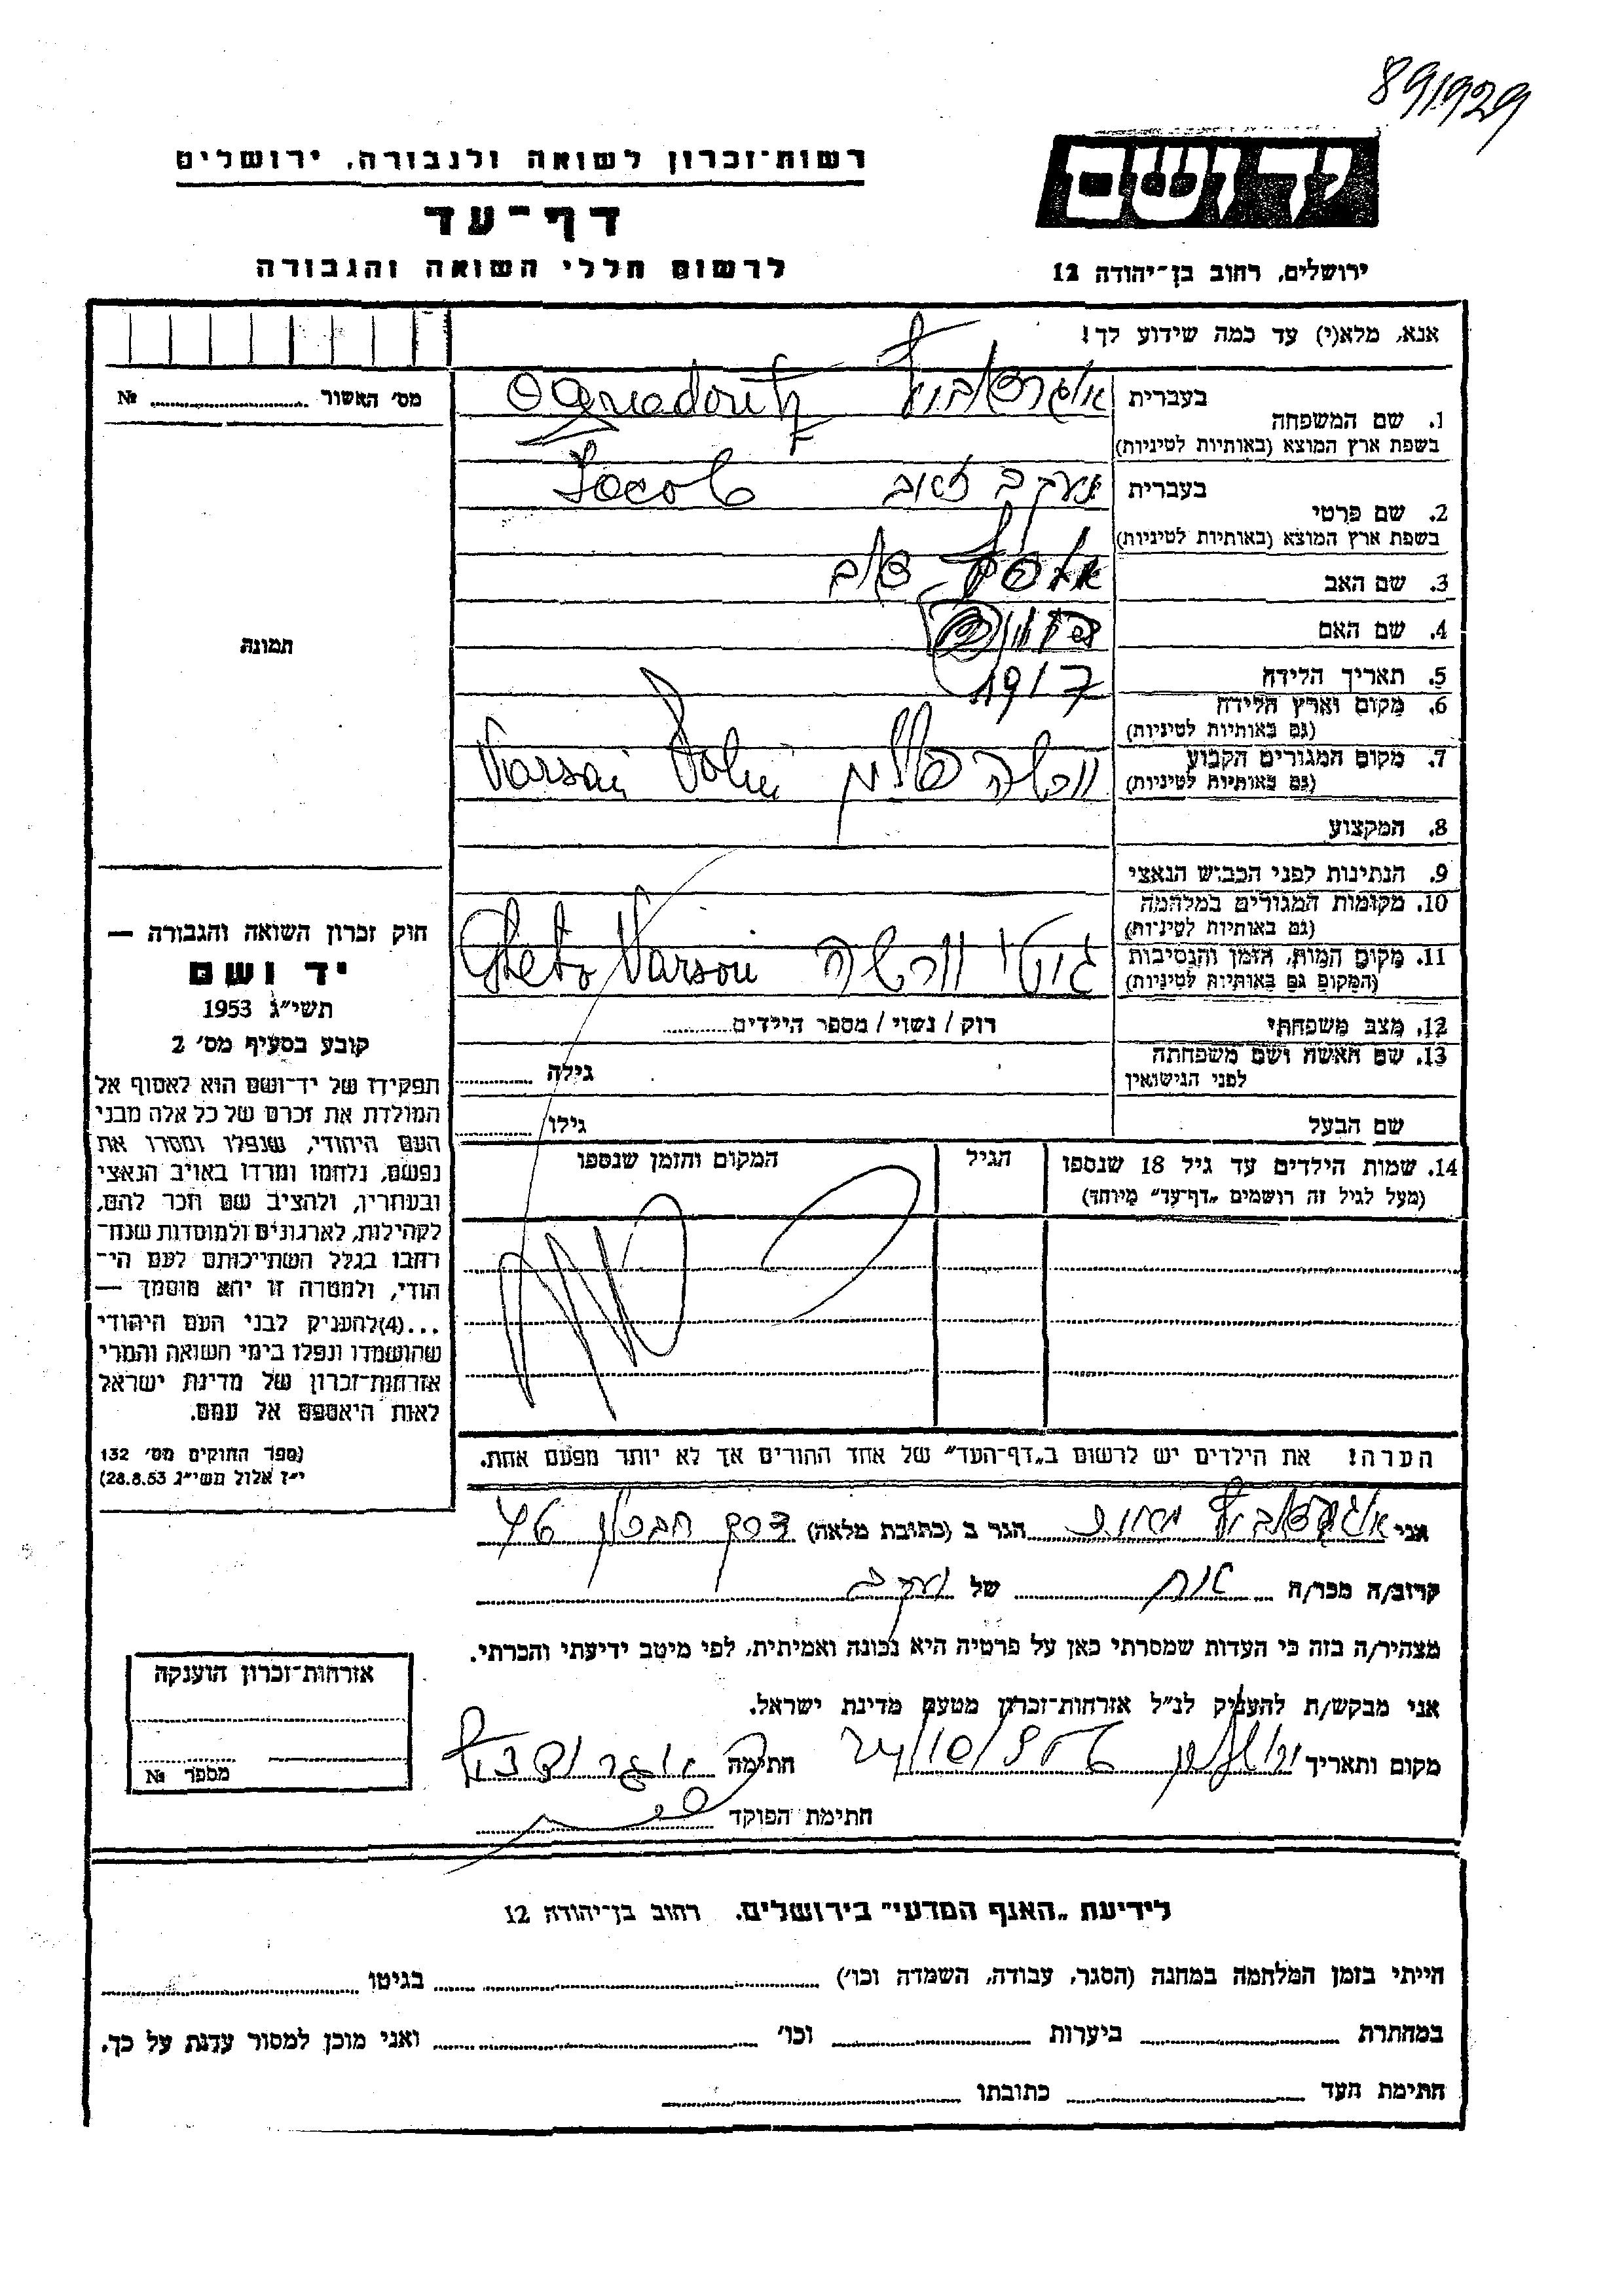 89/929
יד ושם
רשות־זכרון לשואה ולגבורה, ירושלים
דף־עד
לרשום חללי השואה והגבורה
ירושלים, רחוב בן־יהודה 12
אנא, מלא(י) עד כמה שידוע לך!
מס׳ האשור № 
בעברית
1. שם המשפחה
בשפת ארץ המוצא (באותיות לטיניות)
בעברית יעקב זאב Jacob
2. שם פרטי
בשפת ארץ המוצא (באותיות לטיניות)
3. שם האב
4. שם האם
5. תאריך הלידה 1917
6. מקום וארץ הלידה
(גם באותיות לטיניות)
7. מקום המגורים הקבוע
(גם באותיות לטיניות)
ורשה פולין
8. המקצוע
9. הנתינות לפני הכבוש הנאצי
10. מקומות המגורים במלחמה
(גם באותיות לטיניות)
11. מקום המות, הזמן והנסיבות
(המקום גם באותיות לטיניות)
גיטו ורשה Gheto
12. מצב משפחתי רוק / נשוי / מספר הילדים
13. שם האשה ושם משפחתה
לפני הנישואין
גילה
שם הבעל גילו
14. שמות הילדים עד גיל 18 שנספו הגיל המקום והזמן שנספו
(מעל לגיל זה רושמים „דף־עד״ מיוחד)
הערה! את הילדים יש לרשום ב„דף־העד״ של אחד ההורים אך לא יותר מפעם אחת.
תמונה
חוק זכרון השואה והגבורה —
יד ושם
תשי״ג 1953
קובע בסעיף מס׳ 2
תפקידו של יד־ושם הוא לאסוף אל
המולדת את זכרם של כל אלה מבני
העם היהודי, שנפלו ומסרו את
נפשם, נלחמו ומרדו באויב הנאצי
ובעוזריו, ולהציב שם וזכר להם,
לקהילות, לארגונים ולמוסדות שנח־
רבו בגלל השתייכותם לעם הי־
הודי, ולמטרה זו יהא מוסמך —
...(4)להעניק לבני העם היהודי
שהושמדו ונפלו בימי השואה והמרי
אזרחות־זכרון של מדינת ישראל
לאות היאספם אל עמם.
(ספר החוקים מס׳ 132
י״ז אלול תשי״ג 28.8.53)
אני הגר ב (כתובת מלאה) דרך חברון
קרוב/ה מכר/ה אח של יעקב
מצהיר/ה בזה כי העדות שמסרתי כאן על פרטיה היא נכונה ואמיתית, לפי מיטב ידיעתי והכרתי.
אני מבקש/ת להעניק לנ״ל אזרחות־זכרון מטעם מדינת ישראל.
מקום ותאריך ירושלים חתימה
חתימת הפוקד
אזרחות־זכרון הוענקה
מספר №
לידיעת „האגף המדעי״ בירושלים. רחוב בן־יהודה 12
הייתי בזמן המלחמה במחנה (הסגר, עבודה, השמדה וכו׳) בגיטו
במחתרת ביערות וכו׳ ואני מוכן למסור עדות על כך.
חתימת העד כתובתו